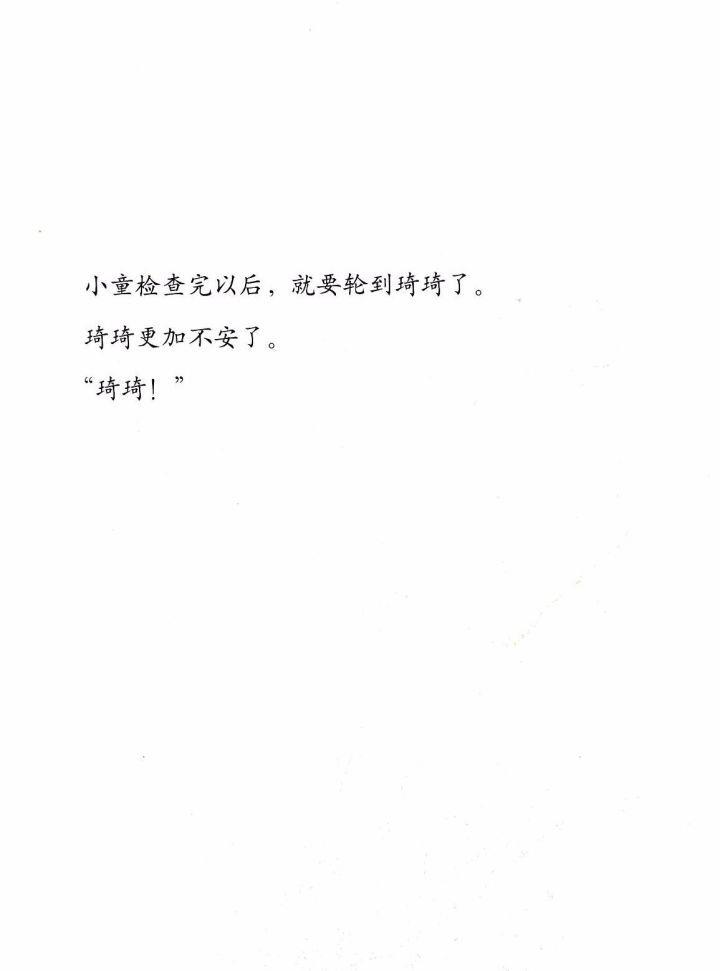 小童检查完以后，就要轮到琦琦了。
琦琦更加不安了。
“琦琦！”